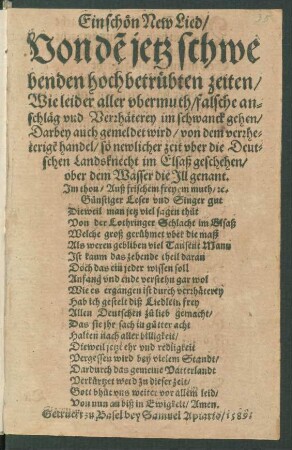 Ein schön New Lied/
Von dẽ jetz schwe
benden hochbetrübten zeiten/
Wie leider aller vbermuth/ falsche an-
schläg vnd Verrhäterey im schwanck gehen/
Darbey auch gemeldet wird/ von dem verrhe-
terischẽ handel/ so newlicher zeit vber die Deut-
schen Landsknecht im Elsaß geschehen/
ober dem Wasser die Ill genant.
Im thon/ Auß frischem freyem muth/ ꝛc.
Günstiger Leser vnd Singer gut
Dieweil man jetz viel sagen thüt
Von der Lothringer Schlacht im Elsaß
Welche groß gerühmet vber die maß
Als weren gebliben viel Tausent Mann
Ist kaum das zehende theil daran
Doch das ein jeder wissen soll
Anfang vnd ende verstehn gar wol
Wie es ergangen ist durch verrhäterey
Hab ich gestelt diß Liedlein frey
Allen Deutschen zů lieb gemacht/
Das sie jhr sach in gůtter acht
Halten nach aller billigkeit/
Dieweil jetzt ehr vnd redligkeit
Vergessen wird bey vielem Standt/
Dardurch das gemeine Vatterlandt
Verkürtzet werd zu dieser zeit/
Gott bhüt vns weiter vor allem leid/
Von nun an biß in Ewigkeit/ Amen.
Getruckt zu Basel bey Samuel Apiario/ 1589.